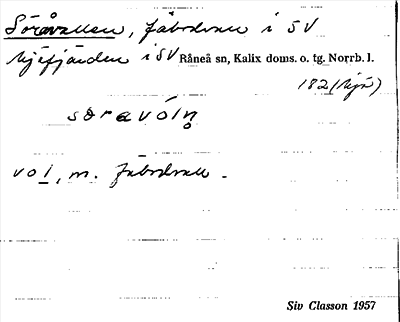 Söråvallen, fäbodvall i SV
Mjöfjärden i SV Råneå sn, Kalix doms. o. tg. Norrb. l.
182 (Mjö)
söravóln̥
vol, m. fäbodvall.
Siv Classon 1957